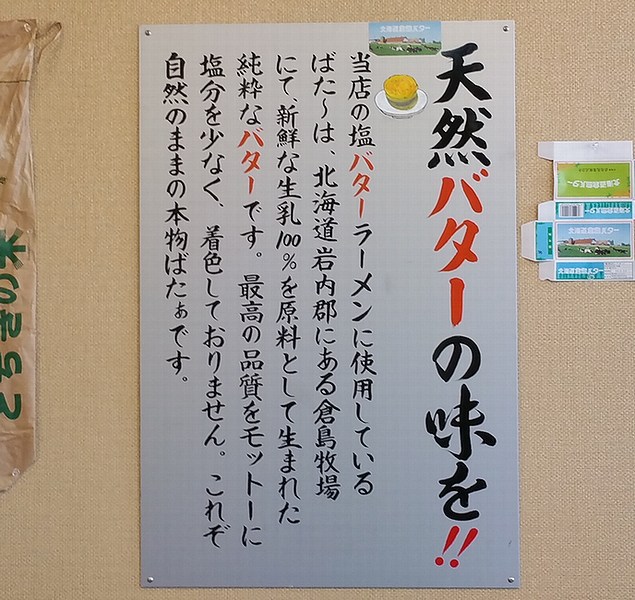 天然バターの味を!!
当店の塩バターラーメンに使用している
ばた〜は、北海道岩内郡にある倉島牧場
にて、新鮮な生乳100%を原料として生まれた
純粋なバターです。最高の品質をモットーに
塩分を少なく、着色しておりません。これぞ
自然のままの本物ばたぁです。
とちぎの米